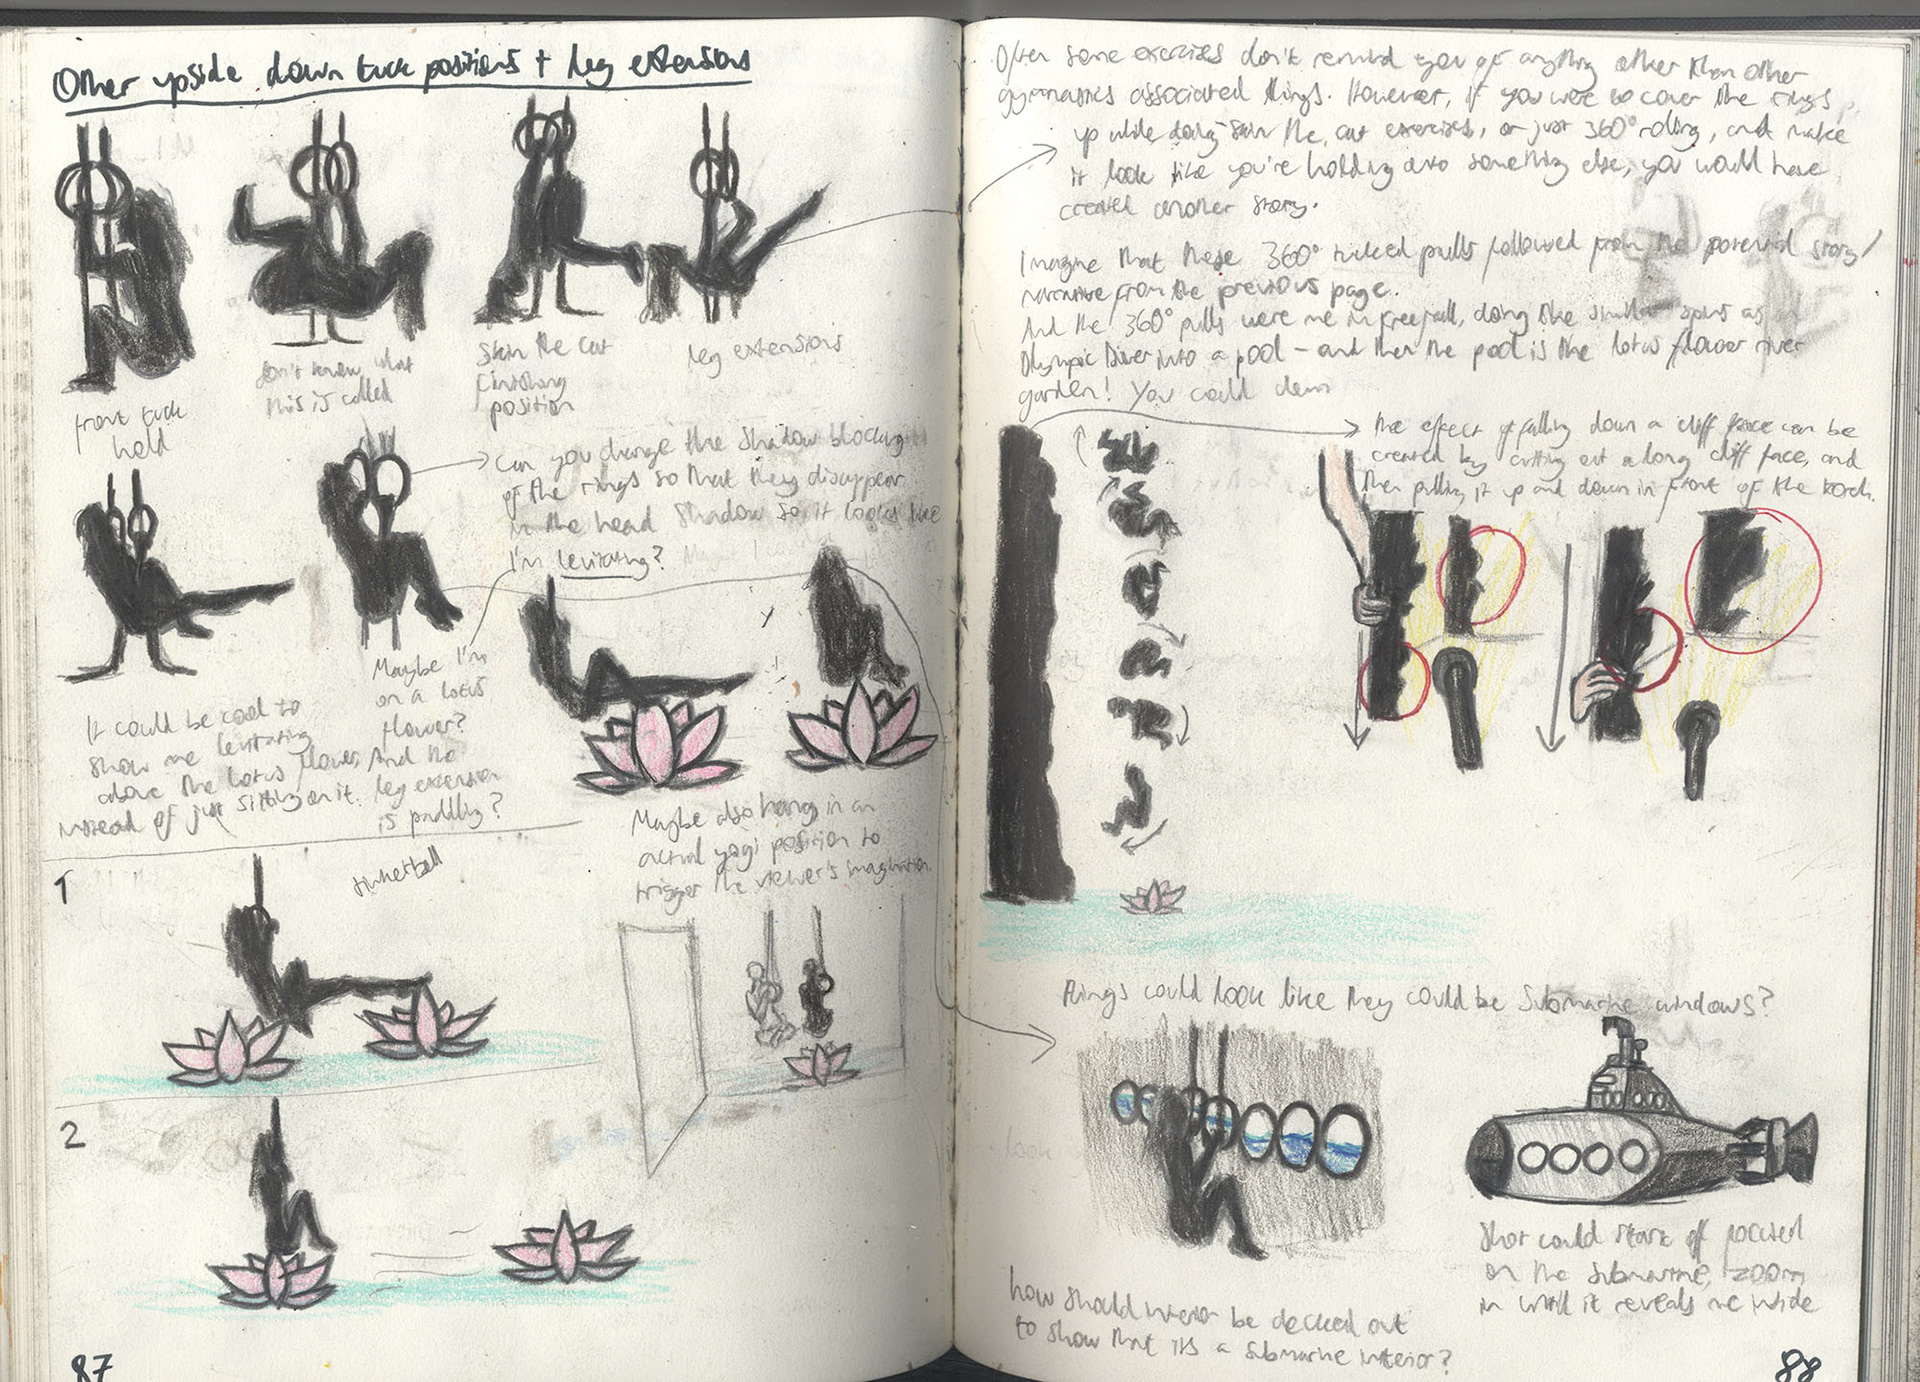 Other upside down tuck positions + leg extensions
front tuck
hold
don't know what
this is called
Skin the cat
finishing
position
leg extensions
Can you change the shadow blocking
of the rings so that they disappear
in the head shadow so it looks like
I'm levitating?
Maybe I'm
on a lotus
flower?
And the
leg extension
is paddling?
It could be cool to
show me levitating
above the lotus flower
instead of just sitting on it.
Maybe also hang in an
actual yogi position to
trigger the viewer's imagination
1
tinkerbell
2
87
Often some exercises don't remind you of anything other than other
gymnastics associated things. However, if you were to cover the rings
up while doing skin the cat exercises, or just 360° rolling, and make
it look like you're holding onto something else, you would have
created another story.
Imagine that these 360° tucked pulls followed from the potential story/
narrative from the previous page.
And the 360° pulls were me in freefall, doing the similar spins as an
Olympic Diver into a pool - and then the pool is the lotus flower river
garden! You could
The effect of falling down a cliff face can be
created by cutting out a long cliff face, and
then pulling it up and down in front of the torch.
Rings could look like they could be submarine windows?
look
Shot could start off focused
on the submarine, zoom
in until it reveals me inside
how should interior be decked out
to show that it's a submarine interior?
88